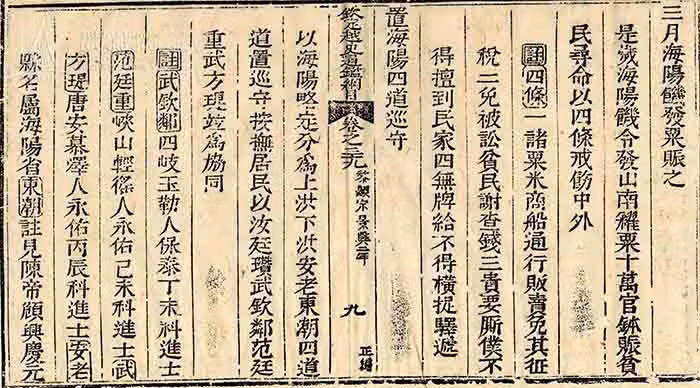 三月海陽饑發粟賑之
是歲海陽饑令發山南糴粟十萬官鉢賑貧
民尋命以四條戒飭中外
註四條一諸粟米商船通行販賣免其征
稅二免被訟貧民謝查錢三貴要廝僕不
得擅到民家四無牌給不得橫捉驛遞
置海陽四道巡守
欽定越史通鑑綱目 正編卷之三十九 黎顯宗景興二年 九 正編
以海陽略定分爲上洪下洪安老東潮四道
道置巡守按撫居民以汝廷瓚武欽鄰范廷
重武方現竝爲協同
註武欽鄰四岐玉勒人保泰丁未科進士
范廷重峽山輕徭人永佑己未科進士武
方瑅唐安慕澤人永佑丙辰科進士安老
縣名屬海陽省東潮註見陳帝顒興慶元